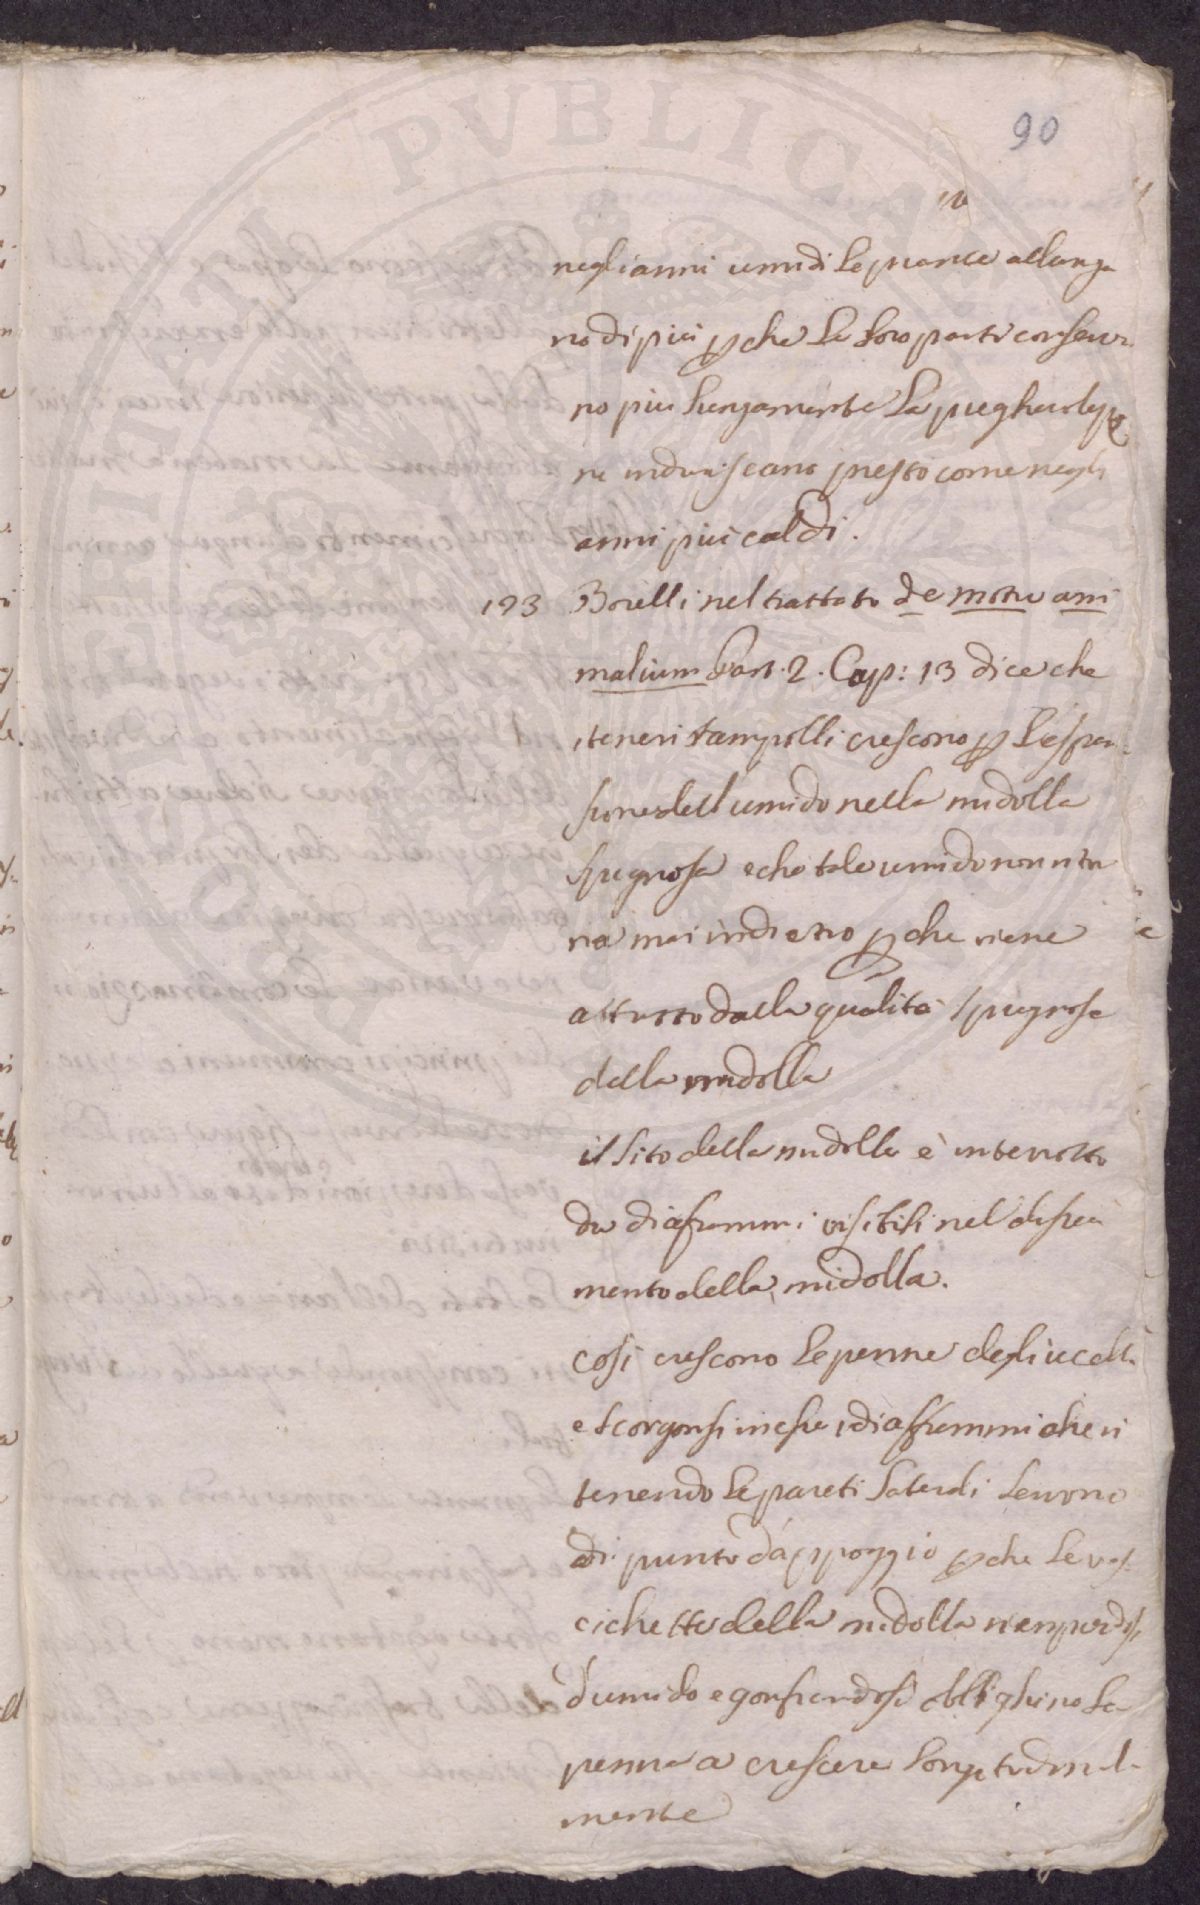 90
negli anni umidi le piante allunga
no di piu pche le loro parti conserva
no piu lungamente la pieghevole
ne induriscano presto come negli
anni piu caldi.
193 Borelli nel trattato de motu ani
malium Part. 2. Cap: 13 dice che
i teneri rampolli crescono p l'espan
sione dell umido nella midolla
spugnosa e che tale umido non ritor
na mai indietro pche viene
dalla qualità spugnosa
della midolla
il sito della midolla è interrotto
da diaframmi visibili nel disecca
mento della midolla.
cosi crescono le penne degli ucelli
e scorgonsi in esse i diafframmi che ri
tenendo le pareti laterali servono
di punto d'appoggio pche le ves
cichette della midolla riempiendosi
d'umido e gonfiandosi oblighino la
penna a crescere longitudinal
mente